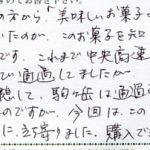 のですから「美味しいお菓子
いたのが、このお菓子を知
です。これまで中央高速
で通過してましたが、
想して、駒ヶ岳は通過
のですが、今回は、この
に立寄りました。購入で